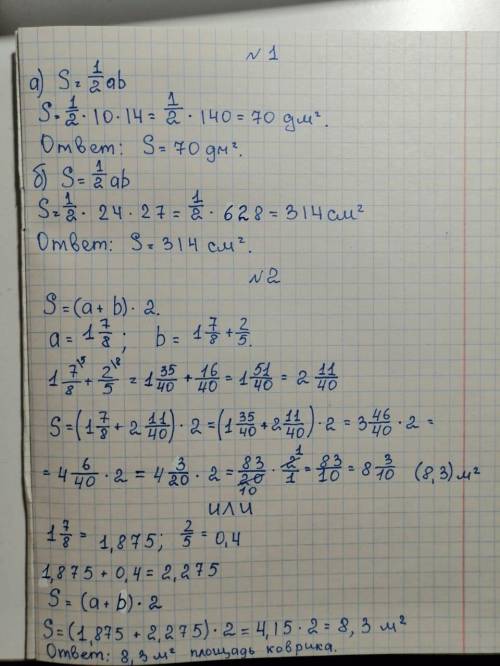 №1
а) S = 1/2 ab
S = 1/2 · 10 · 14 = 1/2 · 140 = 70 дм².
Ответ: S = 70 дм².
б) S = 1/2 ab
S = 1/2 · 24 · 27 = 1/2 · 628 = 314 см²
Ответ: S = 314 см².
№2
S = (a + b) · 2.
a = 1 7/8 ; b = 1 7/8 + 2/5.
1 7/8 \5 + 2/5 \8 = 1 35/40 + 16/40 = 1 51/40 = 2 11/40
S = (1 7/8 + 2 11/40) · 2 = (1 35/40 + 2 11/40) · 2 = 3 46/40 · 2 =
= 4 6/40 · 2 = 4 3/20 · 2 = 83/20 10 · 2 1/1 = 83/10 = 8 3/10 (8,3) м²
ИЛИ
1 7/8 = 1,875; 2/5 = 0,4
1,875 + 0,4 = 2,275
S = (a + b) · 2
S = (1,875 + 2,275) · 2 = 4,15 · 2 = 8,3 м²
Ответ: 8,3 м² площадь коврика.